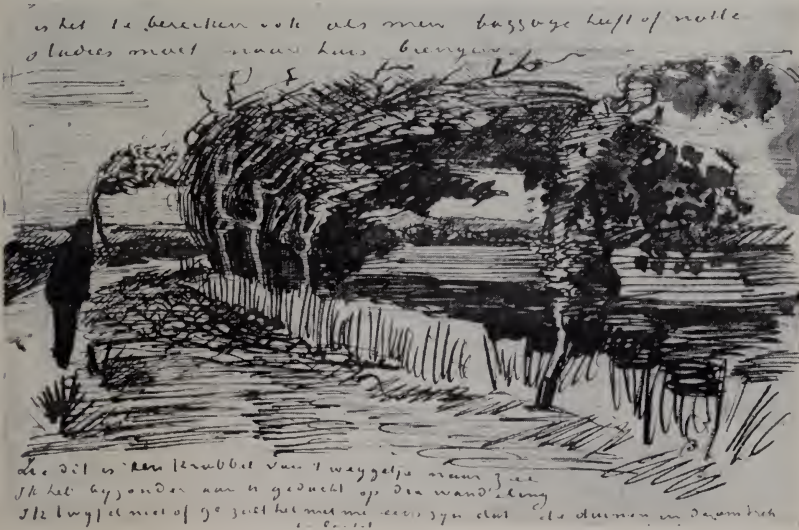 is het te bereiken ook als men baggage heeft of natte
studies moet naar huis brengen.
Zie dit is een krabbel van 't weggetje naar Zee
Ik heb byzonder aan U gedacht op die wandeling
Ik twyfel niet of ge zult het met me eens zyn dat de duinen in